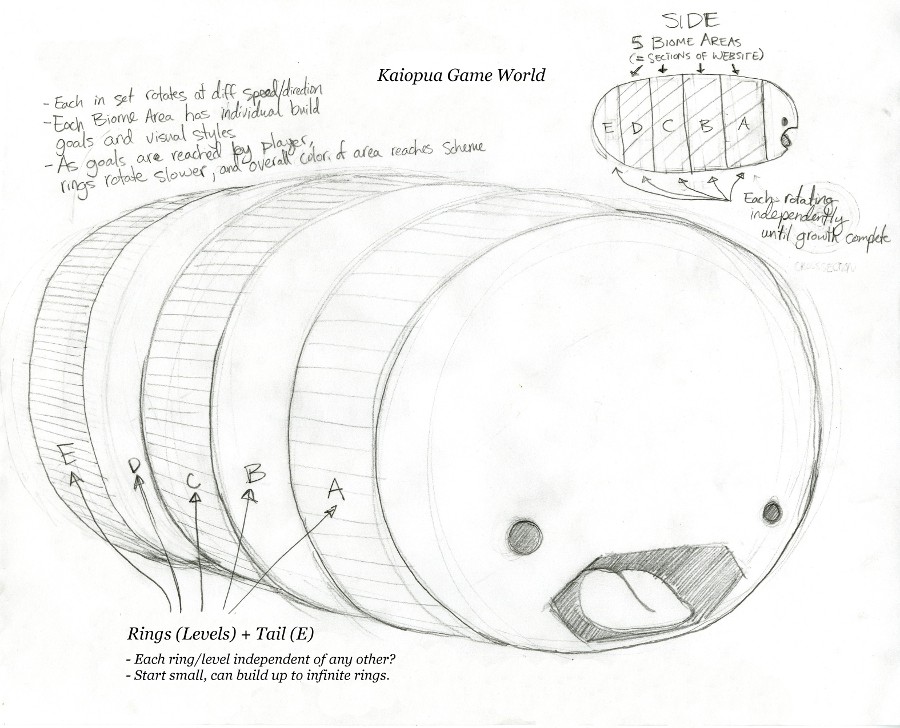 SIDE
5 BIOME AREAS
(= SECTIONS OF WEBSITE)
Kaiopua Game World
- Each in set rotates at diff speed/direction
- Each Biome Area has individual build
goals and visual styles
- As goals are reached by player,
rings rotate slower, and overall color of area reaches scheme
E D C B A
Each rotating
independently
until growth complete
CROSS SECTION
E
D
C
B
A
Rings (Levels) + Tail (E)
- Each ring/level independent of any other?
- Start small, can build up to infinite rings.